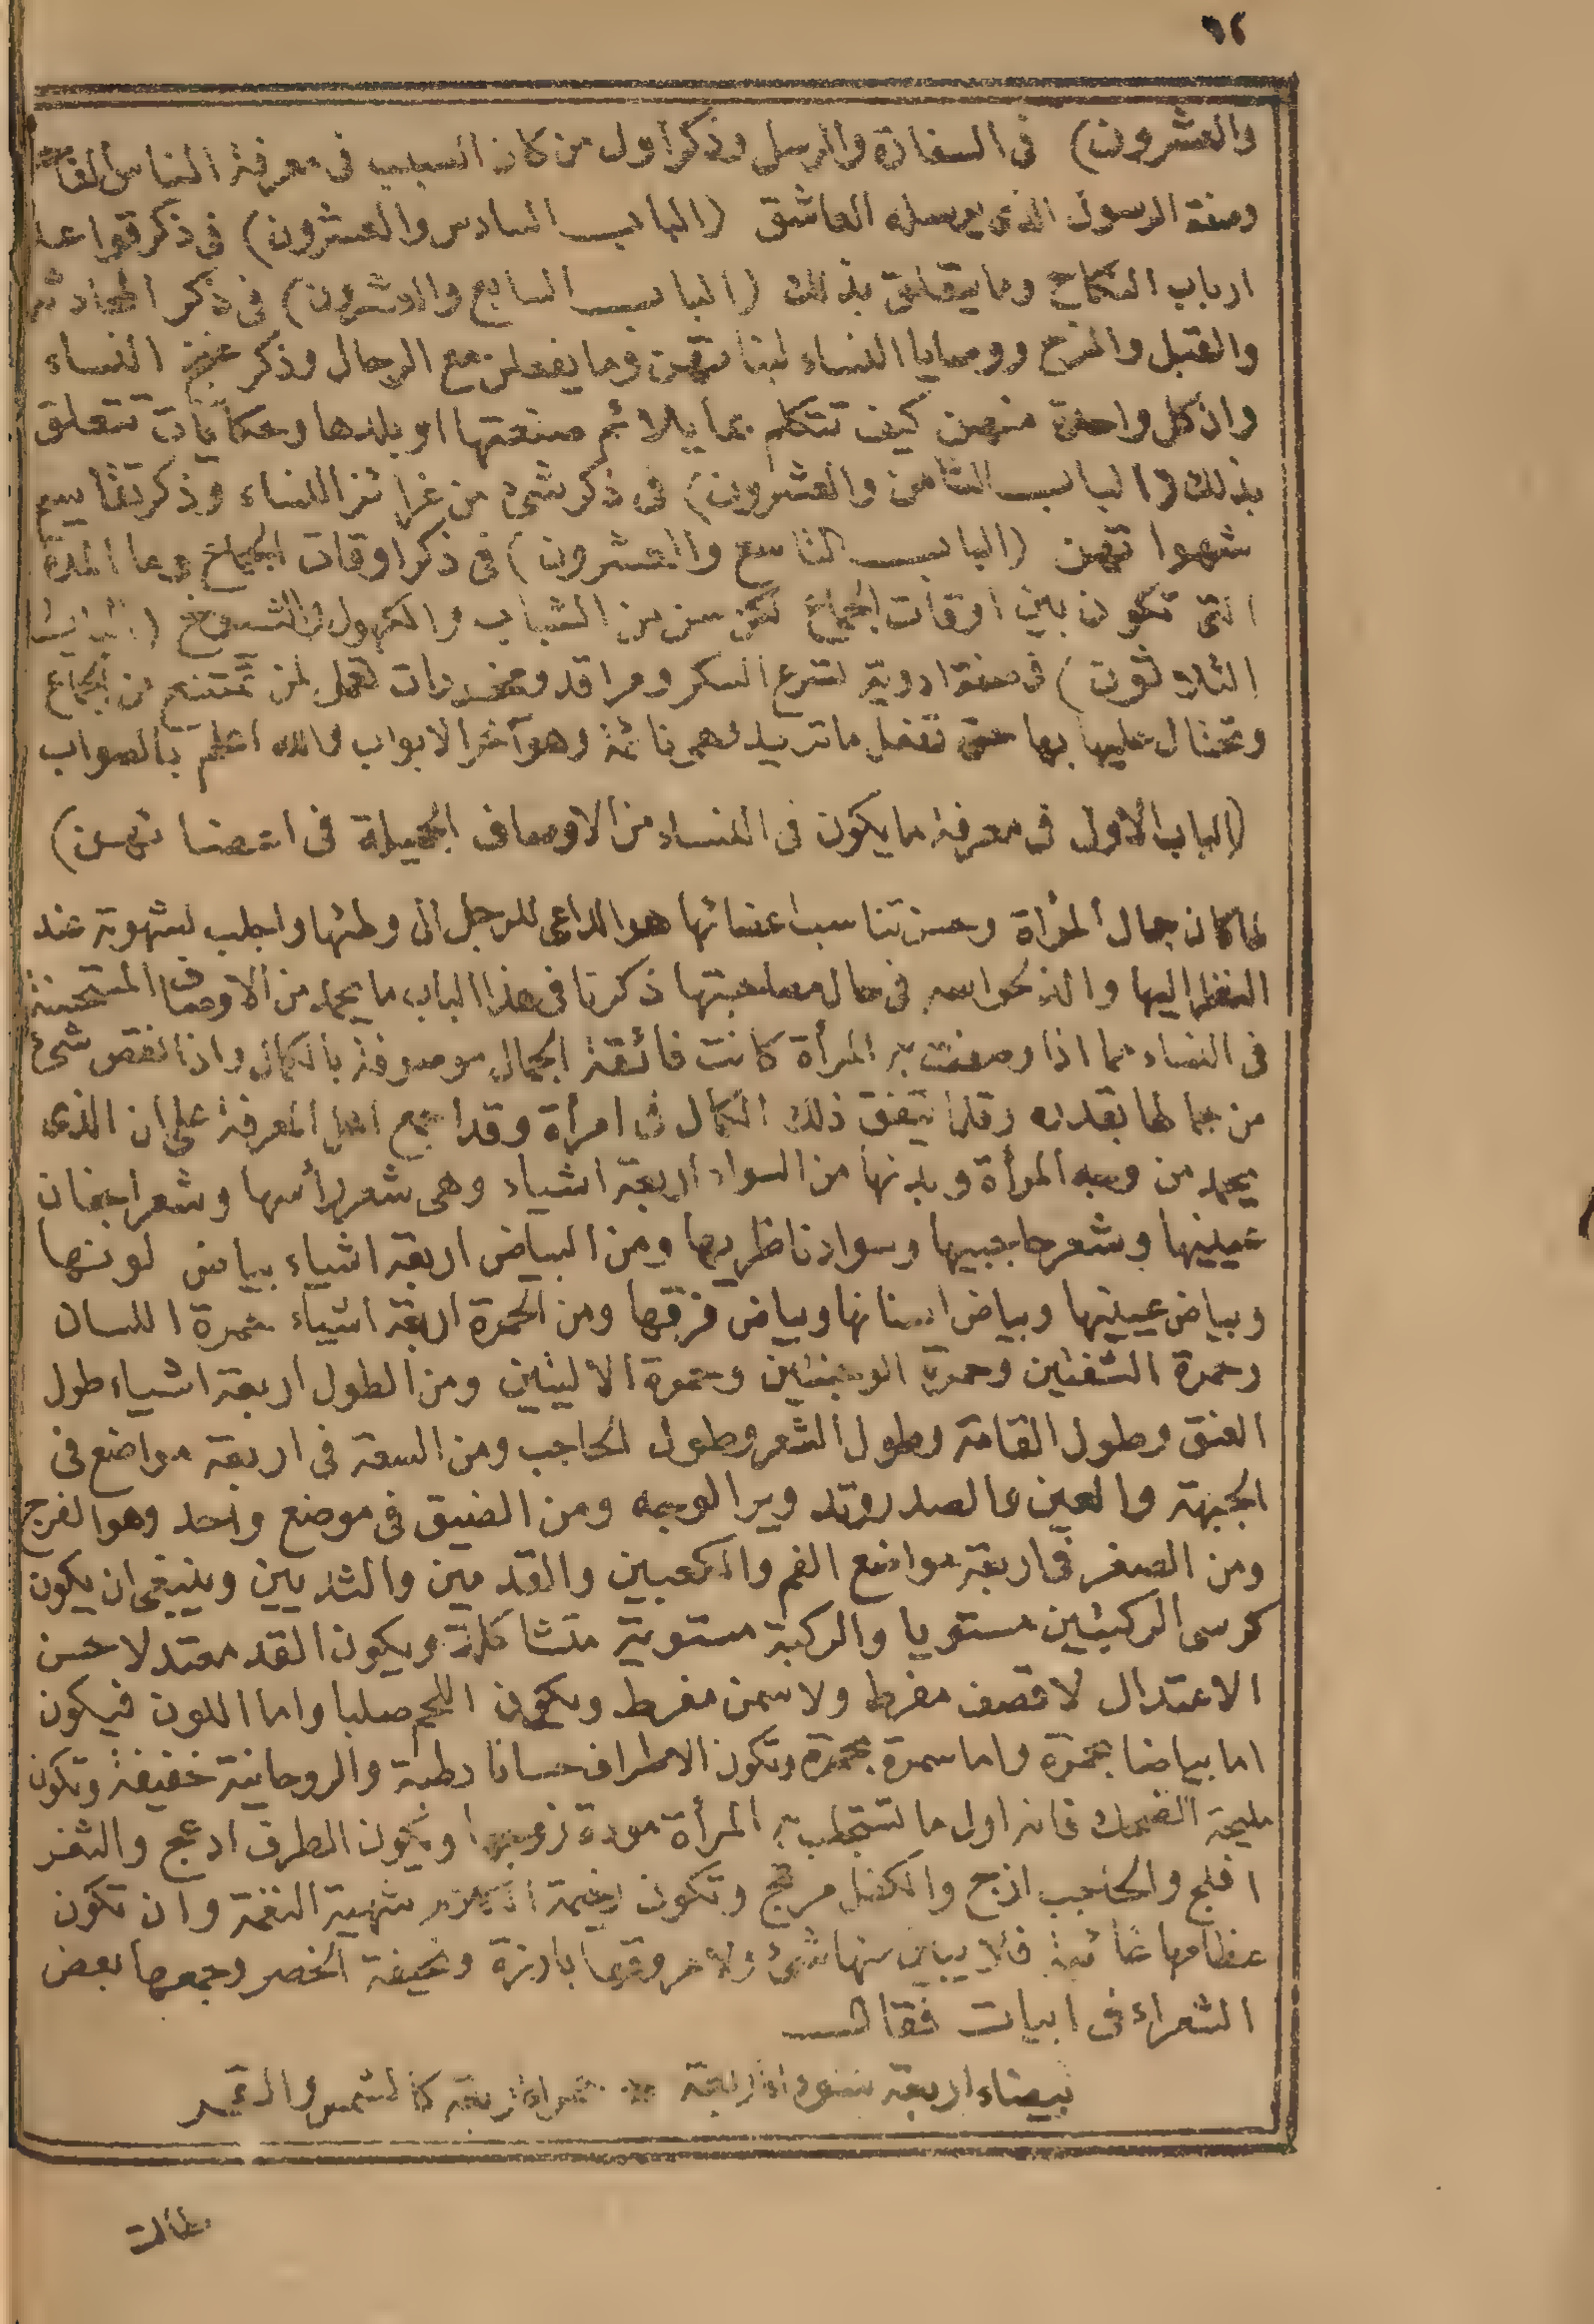 ٦٢
والعشرون) فى السفارة والرسل وذكر اول من كان السبب فى معرفة الناس
وصفة الرسول الذى يرسله العاشق (الباب السادس والعشرون) فى ذكر قواعد
ارباب النكاح وما يتعلق بذلك (الباب السابع والعشرون) فى ذكر المحادثة
والقبل والمزح ووصايا النساء لبناتهن وما يفعلن مع الرجال وذكر غنج النساء
وان كل واحدة منهن كيف تتكلم بما يلائم صنعتها او بلدها وحكايات تتعلق
بذلك (الباب الثامن والعشرون) فى ذكر شئ من غرائز النساء وذكر تقاسيم
شهواتهن (الباب التاسع والعشرون) فى ذكر اوقات الجماع وما المدة
التى تكون بين اوقات الجماع لكل سن من الشباب والكهول والشيوخ (الباب
الثلاثون) فى صفة ادوية تسرع السكر ومراقد ومخدرات تعمل لمن تمتنع من الجماع
وتحتال عليها بها حتى تفعل ما تريد وهى نائمة وهو آخر الابواب والله اعلم بالصواب
(الباب الاول فى معرفة ما يكون فى النساء من الاوصاف الجميلة فى اعضائهن)
لما كان جمال المرأة وحسن تناسب اعضائها هو الداعى للرجل الى وطئها واجلب لشهوته عند
النظر اليها والذ لحواسه فى حال مصاحبتها ذكرنا فى هذا الباب ما يحمد من الاوصاف المستحسنة
فى النساء مما اذا وصفت به المرأة كانت فائقة الجمال موصوفة بالكمال واذا نقص شئ
من جمالها بقدره وقلما يتفق ذلك الكمال فى امرأة وقد اجمع اهل المعرفة على ان الذى
يحمد من وجه المرأة وبدنها من السواد اربعة اشياء وهى شعر رأسها وشعر اجفان
عينيها وشعر حاجبيها وسواد ناظريها ومن البياض اربعة اشياء بياض لونها
وبياض عينيها وبياض اسنانها وبياض فرقها ومن الحمرة اربعة اشياء حمرة اللسان
وحمرة الشفتين وحمرة الوجنتين وحمرة الاليتين ومن الطول اربعة اشياء طول
العنق وطول القامة وطول الشعر وطول الحاجب ومن السعة فى اربعة مواضع فى
الجبهة والعين والصدر وتدوير الوجه ومن الضيق فى موضع واحد وهو الفرج
ومن الصغر فى اربعة مواضع الفم والكعبين والقدمين والثديين وينبغى ان يكون
كرسى الركبتين مستويا والركبة مستوية متشاكلة ويكون القد معتدلا حسن
الاعتدال لا قصف مفرط ولا سمن مفرط ويكون اللحم صلبا واما اللون فيكون
اما بياضا بحمرة واما سمرة بحمرة وتكون الاطراف حسانا رطبة والروحانية خفيفة وتكون
مليحة الضحك فانه اول ما تستجلب به المرأة مودة زوجها ويكون الطرف ادعج والثغر
افلج والحاجب ازج والكفل مرتج وتكون رخيمة الكلام شهية النغمة وان تكون
عظامها غائبة فلا يبان منها شئ ولا عروقها بارزة ونحيفة الخصر وجمعها بعض
الشعراء فى ابيات فقال
بيضاء اربعة سوداء اربعة * حمراء اربعة كالشمس والقمر
طالت